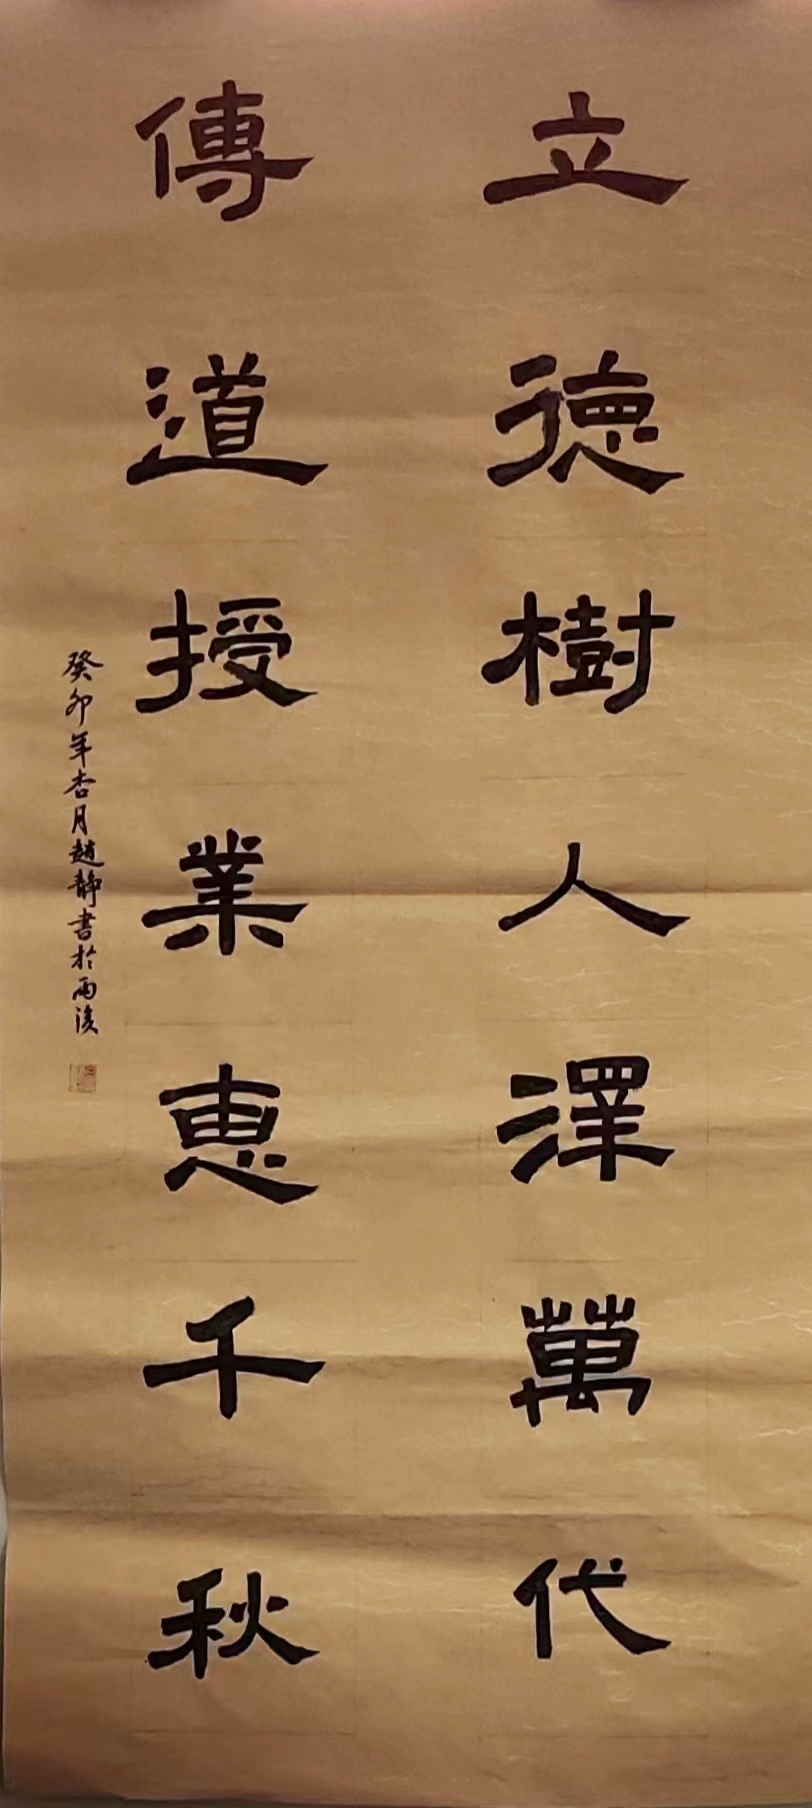 立德樹人澤萬代
傳道授業惠千秋
癸卯年杏月趙靜書於雨後